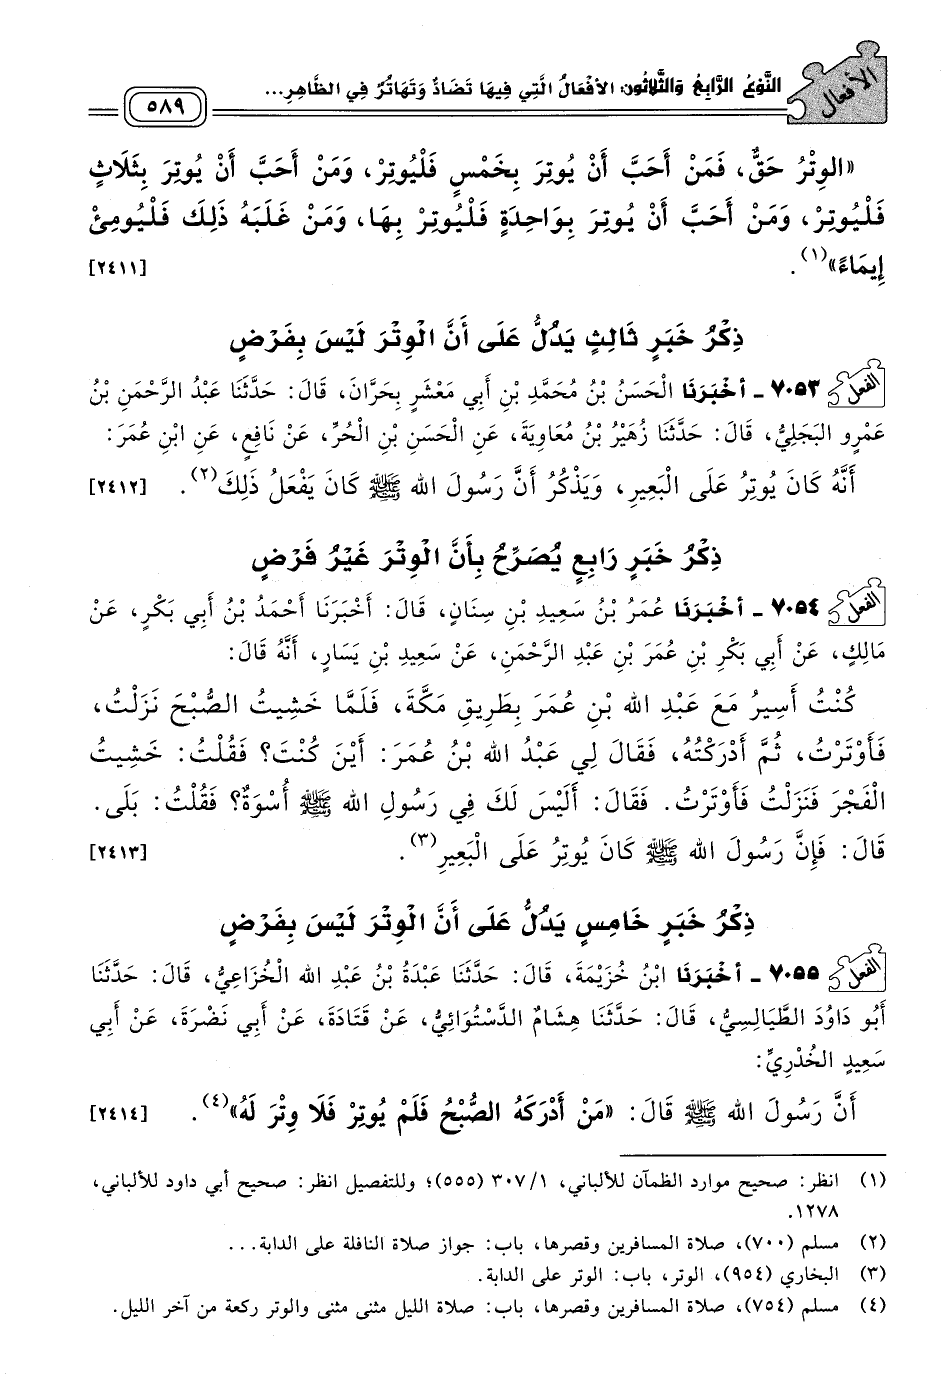 الأفعال
النَّوْعُ الرَّابِعُ وَالثَّلَاثُونَ: الأَفْعَالُ الَّتِي فِيهَا تَضَادٌّ وَتَهَاتُرٌ فِي الظَّاهِرِ...
٥٨٩
«الوِتْرُ حَقٌّ، فَمَنْ أَحَبَّ أَنْ يُوتِرَ بِخَمْسٍ فَلْيُوتِرْ، وَمَنْ أَحَبَّ أَنْ يُوتِرَ بِثَلَاثٍ
فَلْيُوتِرْ، وَمَنْ أَحَبَّ أَنْ يُوتِرَ بِوَاحِدَةٍ فَلْيُوتِرْ بِهَا، وَمَنْ غَلَبَهُ ذَلِكَ فَلْيُومِئْ
إِيمَاءً»(١). [٢٤١١]
ذِكْرُ خَبَرٍ ثَالِثٍ يَدُلُّ عَلَى أَنَّ الْوِتْرَ لَيْسَ بِفَرْضٍ
الفعل ٧٠٥٣ - أَخْبَرَنَا الْحَسَنُ بْنُ مُحَمَّدِ بْنِ أَبِي مَعْشَرٍ بِحَرَّانَ، قَالَ: حَدَّثَنَا عَبْدُ الرَّحْمَنِ بْنُ
عَمْرٍو البَجَلِيُّ، قَالَ: حَدَّثَنَا زُهَيْرُ بْنُ مُعَاوِيَةَ، عَنِ الْحَسَنِ بْنِ الْحُرِّ، عَنْ نَافِعٍ، عَنِ ابْنِ عُمَرَ:
أَنَّهُ كَانَ يُوتِرُ عَلَى الْبَعِيرِ، وَيَذْكُرُ أَنَّ رَسُولَ الله ﷺ كَانَ يَفْعَلُ ذَلِكَ(٢). [٢٤١٢]
ذِكْرُ خَبَرٍ رَابِعٍ يُصَرِّحُ بِأَنَّ الْوِتْرَ غَيْرُ فَرْضٍ
الفعل ٧٠٥٤ - أَخْبَرَنَا عُمَرُ بْنُ سَعِيدِ بْنِ سِنَانٍ، قَالَ: أَخْبَرَنَا أَحْمَدُ بْنُ أَبِي بَكْرٍ، عَنْ
مَالِكٍ، عَنْ أَبِي بَكْرِ بْنِ عُمَرَ بْنِ عَبْدِ الرَّحْمَنِ، عَنْ سَعِيدِ بْنِ يَسَارٍ، أَنَّهُ قَالَ:
كُنْتُ أَسِيرُ مَعَ عَبْدِ الله بْنِ عُمَرَ بِطَرِيقِ مَكَّةَ، فَلَمَّا خَشِيتُ الصُّبْحَ نَزَلْتُ،
فَأَوْتَرْتُ، ثُمَّ أَدْرَكْتُهُ، فَقَالَ لِي عَبْدُ الله بْنُ عُمَرَ: أَيْنَ كُنْتَ؟ فَقُلْتُ: خَشِيتُ
الْفَجْرَ فَنَزَلْتُ فَأَوْتَرْتُ. فَقَالَ: أَلَيْسَ لَكَ فِي رَسُولِ الله ﷺ أُسْوَةٌ؟ فَقُلْتُ: بَلَى.
قَالَ: فَإِنَّ رَسُولَ الله ﷺ كَانَ يُوتِرُ عَلَى الْبَعِيرِ(٣). [٢٤١٣]
ذِكْرُ خَبَرٍ خَامِسٍ يَدُلُّ عَلَى أَنَّ الْوِتْرَ لَيْسَ بِفَرْضٍ
الفعل ٧٠٥٥ - أَخْبَرَنَا ابْنُ خُزَيْمَةَ، قَالَ: حَدَّثَنَا عَبْدَةُ بْنُ عَبْدِ الله الْخُزَاعِيُّ، قَالَ: حَدَّثَنَا
أَبُو دَاوُدَ الطَّيَالِسِيُّ، قَالَ: حَدَّثَنَا هِشَامٌ الدَّسْتُوَائِيُّ، عَنْ قَتَادَةَ، عَنْ أَبِي نَضْرَةَ، عَنْ أَبِي
سَعِيدٍ الخُدْرِيِّ:
أَنَّ رَسُولَ الله ﷺ قَالَ: «مَنْ أَدْرَكَهُ الصُّبْحُ فَلَمْ يُوتِرْ فَلَا وِتْرَ لَهُ»(٤). [٢٤١٤]
(١) انظر: صحيح موارد الظمآن للألباني، ٣٠٧/١ (٥٥٥)؛ وللتفصيل انظر: صحيح أبي داود للألباني،
١٢٧٨.
(٢) مسلم (٧٠٠)، صلاة المسافرين وقصرها، باب: جواز صلاة النافلة على الدابة...
(٣) البخاري (٩٥٤)، الوتر، باب: الوتر على الدابة.
(٤) مسلم (٧٥٤)، صلاة المسافرين وقصرها، باب: صلاة الليل مثنى مثنى والوتر ركعة من آخر الليل.